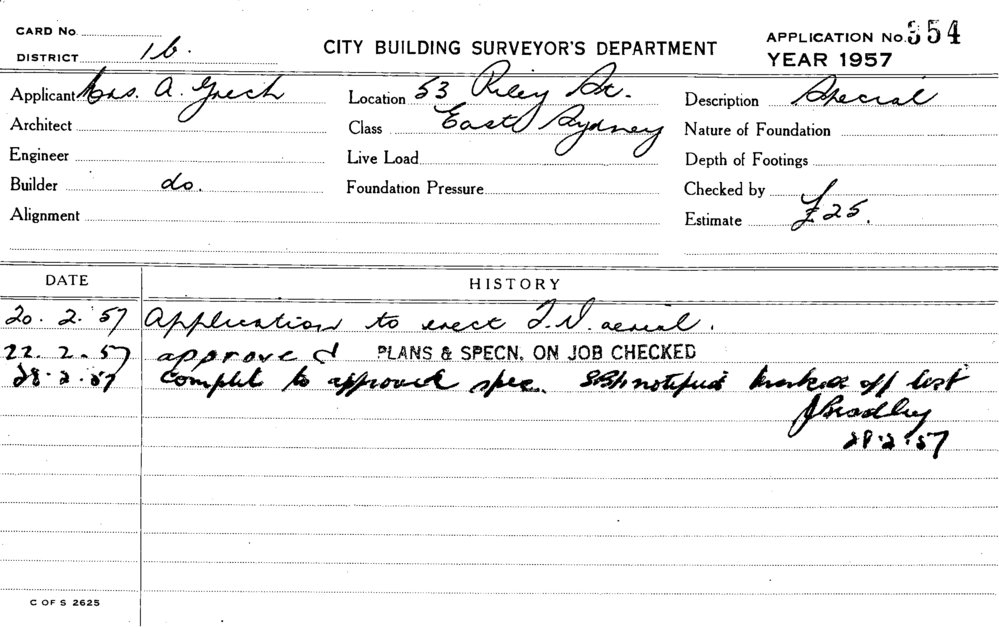 CARD No.
DISTRICT 1b.
CITY BUILDING SURVEYOR'S DEPARTMENT
APPLICATION No. 354
YEAR 1957
Applicant Mrs. A. Grech
Location 53 Riley St.
Description Special
Architect
Class East Sydney
Nature of Foundation
Engineer
Live Load
Depth of Footings
Builder do.
Foundation Pressure
Checked by
Alignment
Estimate £25.
DATE HISTORY
20. 2. 57 Application to erect T.V. aerial.
22. 2. 57 approved PLANS & SPECN. ON JOB CHECKED
28. 2. 57 Complet to approved spec. notified marked off list
J Bradley
28.2.57
C OF S 2625